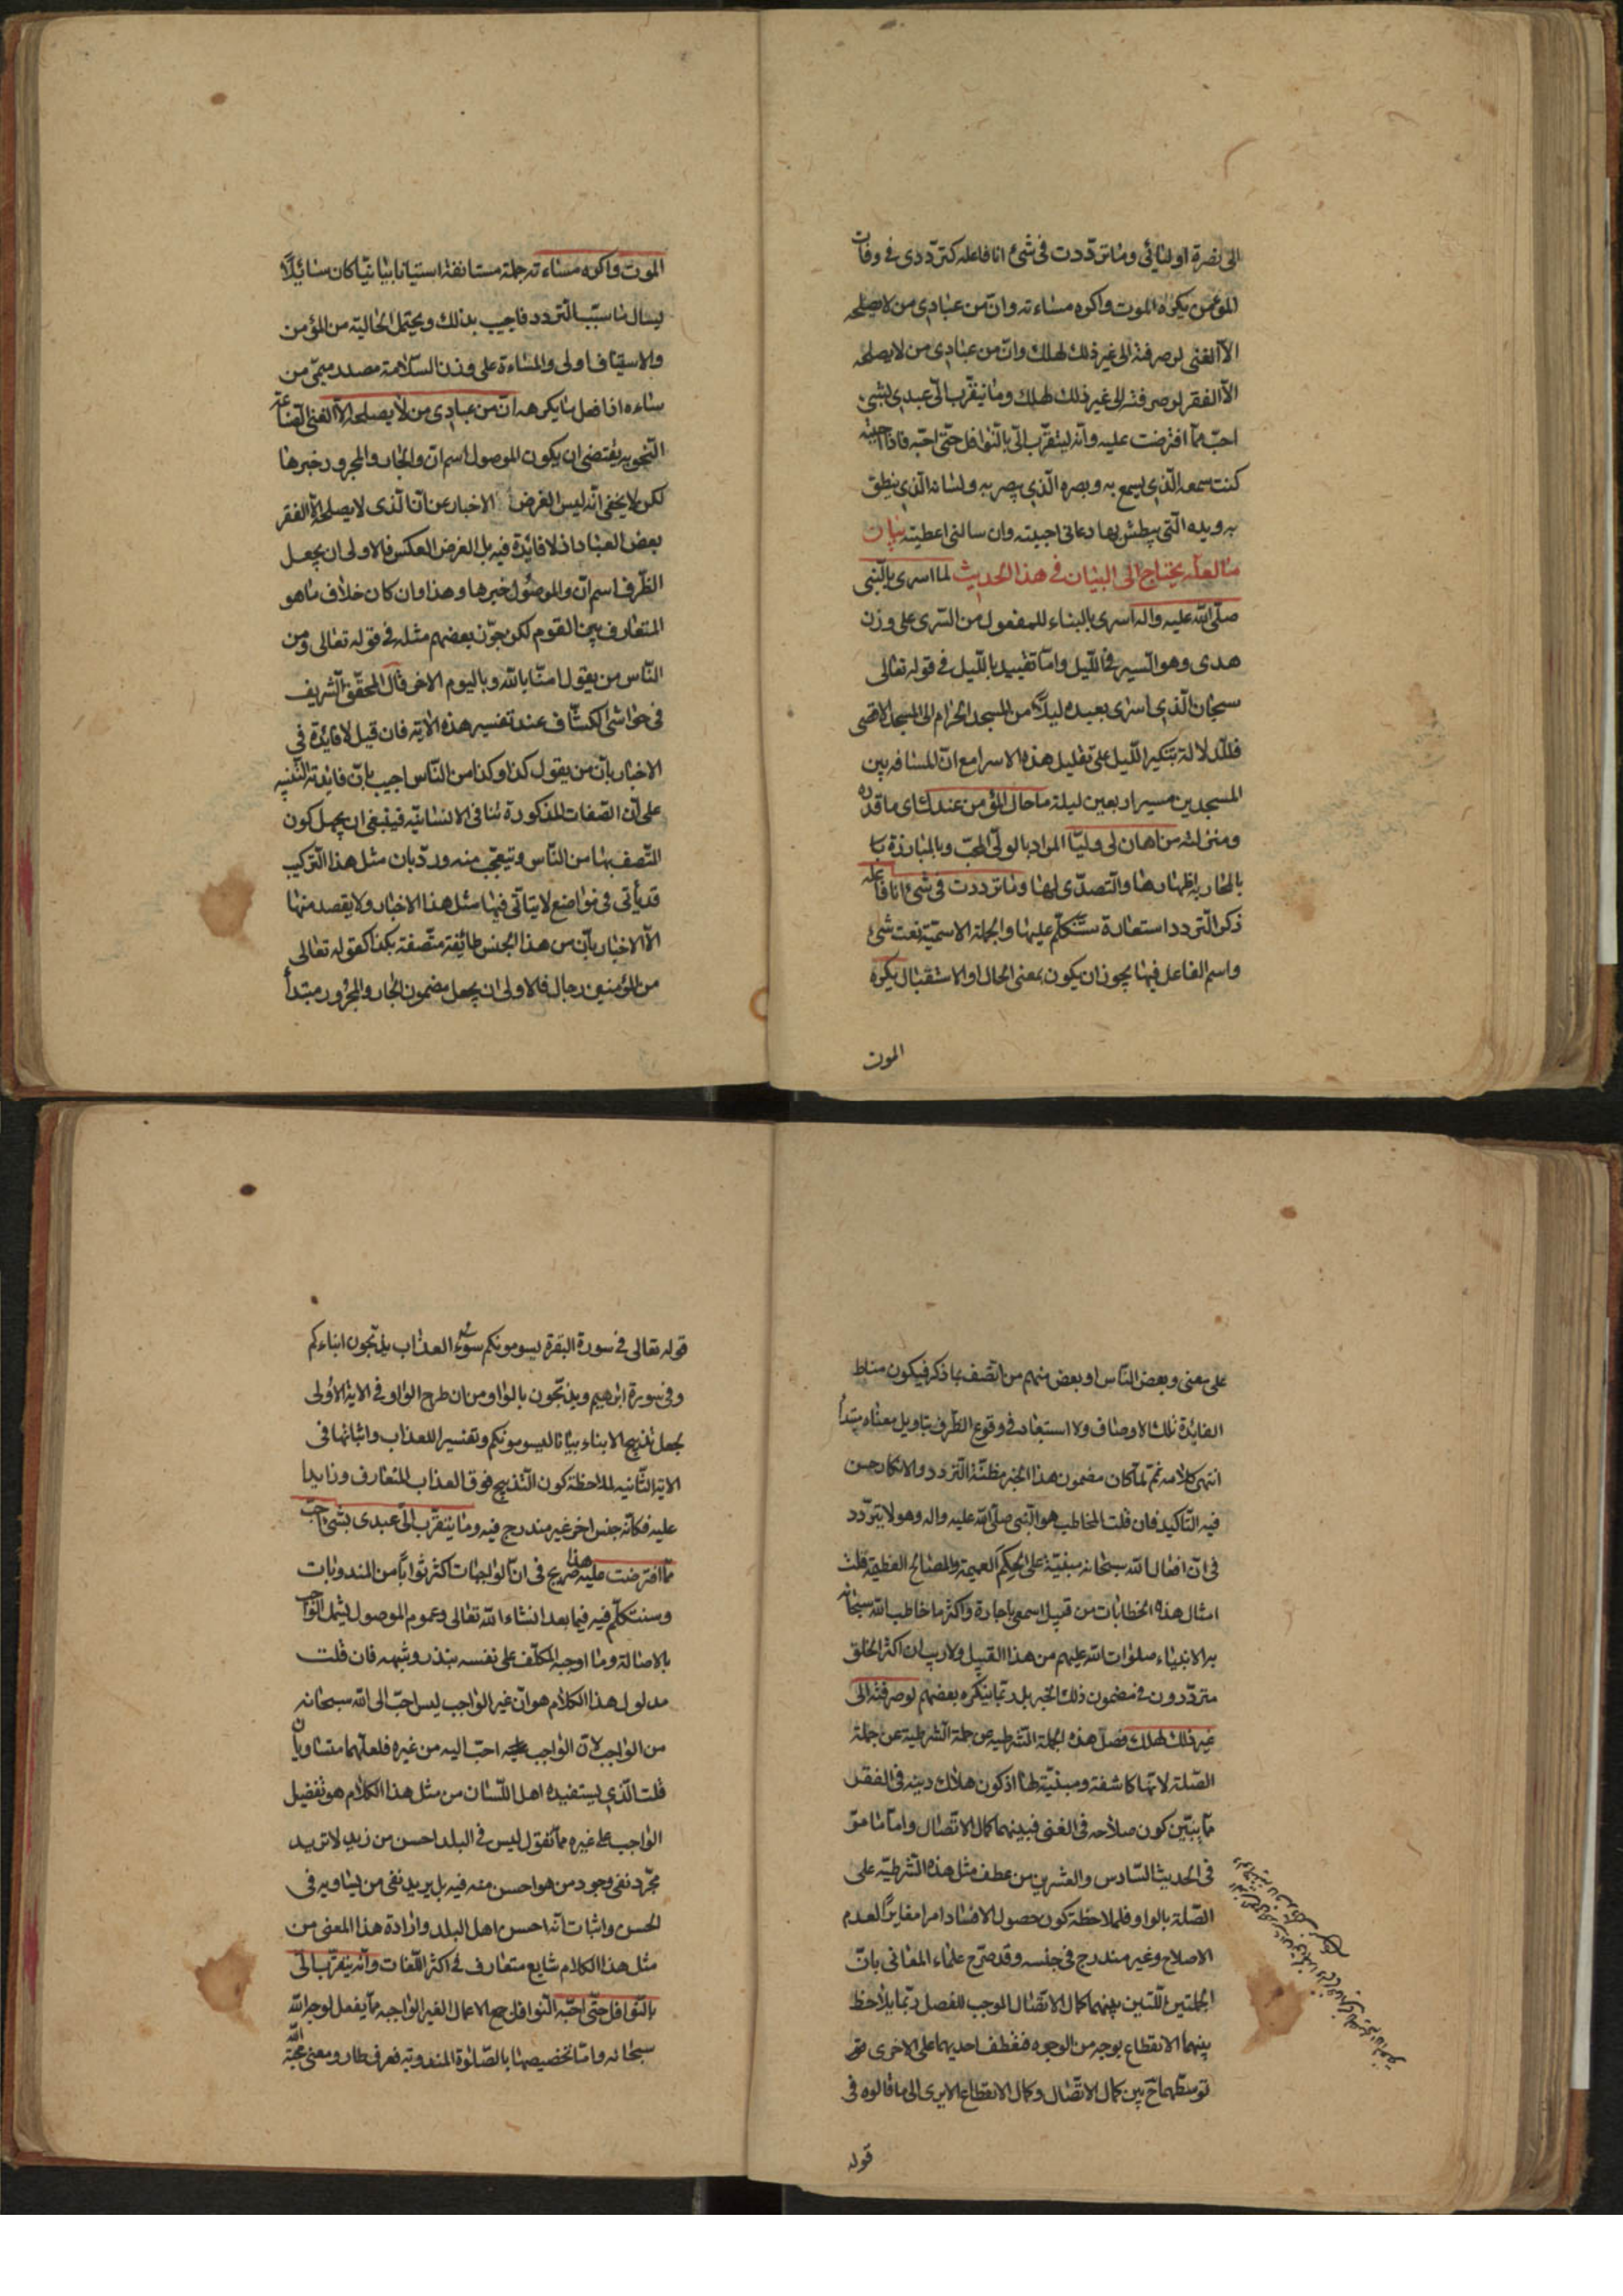 الى نصرة اوليائى وما تردّدت فى شئ انا فاعله كتردّدى فى وفات
المؤمن يكره الموت واكره مساءته وانّ من عبادى من لا يصلحه
الاّ الغنى لو صرفته الى غير ذلك لهلك وانّ من عبادى من لا يصلحه
الاّ الفقر لو صرفته الى غير ذلك لهلك وما يتقرّب الىّ عبدى بشئ
احبّ ممّا افترضت عليه وانّه ليتقرّب الىّ بالنّوافل حتّى احبّه فاذا احببته
كنت سمعه الّذى يسمع به وبصره الّذى يبصر به ولسانه الّذى ينطق
به ويده الّتى يبطش بها دعانى اجبته وان سالنى اعطيته بيان
ما لعلّه يحتاج الى البيان فى هذا الحديث لما اسرى بالنّبى
صلّى الله عليه واله اسرى بالبناء للمفعول من السّرى على وزن
هدى وهو السير فى اللّيل وامّا تقييد باللّيل فى قوله تعالى
سبحان الّذى اسرى بعبده ليلاً من المسجد الحرام الى المسجد الاقصى
فللدلالة بتنكير اللّيل على تقليل هذه الاسرا مع انّ المسافه بين
المسجدين مسير اربعين ليلة ما حال المؤمن عندك اى ما قدره
ومنزلته من اهان لى وليّا المراد بالولىّ المحبّ وبالمبارزة بها
بالمحاربه اظهارها والتصدّى لها وما ترددت فى شئ انا فاعله
ذكر التّردد استعارة ستتكلّم عليها والجملة الاسميّة نعت شئ
واسم الفاعل فيها يجوز ان يكون بمعنى الحال او الاستقبال يكره
الموت
الموت واكره مساءته جملة مستانفة استينافا بيانيّا كان سائلاً
يسال ما سبب التّردد فاجيب بذلك ويحتمل الحالية من المؤمن
والاستيناف اولى والمساءة على وزن السّلامة مصدر ميمّى من
ساءه اذا فعل ما يكرهه انّ من عبادى من لا يصلحه الاّ الغنى الصّناعة
النّحويه يقتضى ان يكون الموصول اسم انّ والجار والمجرور خبرها
لكن لا يخفى انّه ليس الغرض الاخبار عن انّ الّذى لا يصلحه الاّ الفقر
بعض العباد اذ لا فائدة فيه بل الغرض العكس فالاولى ان يجعل
الظّرف اسم انّ والموصول خبرها وهذا وان كان خلاف ما هو
المتعارف بين القوم لكن جوّز بعضهم مثله فى قوله تعالى ومن
النّاس من يقول امنّا بالله وباليوم الاخر قال المحقّق الشّريف
فى حواشى الكشّاف عند تفسير هذه الاية فان قيل لا فائدة فى
الاخبار بانّ من يقول كذا وكذا من النّاس اجيب بانّ فائدته التّنبيه
على انّ الصّفات المذكورة تنافى الانسانيّة فينبغى ان يجهل كون
المتّصف بها من النّاس ويتعجّب منه وردّ بان مثل هذا التّركيب
قد يأتى فى مواضع لا يتاتّى فيها مثل هذا الاخبار ولا يقصد منها
الاّ الاخبار بانّ من هذا الجنس طائفة متّصفة بكذا كقوله تعالى
من المؤمنين رجال فالاولى ان يجعل مضمون الجار والمجرور مبتدأ
على معنى وبعض النّاس او بعض منهم من اتّصف بما ذكر فيكون مناط
الفائدة تلك الاوصاف ولا استبعاد فى وقوع الظّرف بتاويل معناه مبتدأ
انتهى كلامه ثمّ لمّا كان مضمون هذا الخبر مظنّة التّردد والانكار حسن
فيه التّاكيد فان قلت المخاطب هو النّبى صلّى الله عليه واله وهو لا يتردّد
فى انّ افعال الله سبحانه مبنيّة على الحِكَم العميمة والمصالح العظيمة قلت
امثال هذه الخطابات من قبيل اسمعى يا جارة واكثر ما خاطب الله سبحانه
به الانبياء صلوات الله عليهم من هذا القبيل ولا ريب ان اكثر الخلق
متردّدون فى مضمون ذلك الخبر بل ربّما ينكره بعضهم لو صرفته الى
غير ذلك لهلك فصل هذه الجملة الشرطيه عن جملة
الصّلة لانّها كاشفة ومبنيّة لها اذ كون هلاك دينه فى الفقر
ممّا يبيّن كون صلاحه فى الغنى فبينهما كمال الاتّصال وامّا ما مرّ
فى الحديث السّادس والعشرين من عطف مثل هذه الشّرطيّة على
الصّلة بالواو فلملاحظة كون حصول الافساد امرا مغايراً لعدم
الاصلاح وغير مندرج فى جنسه وقد صرّح علماء المعانى بانّ
الجملتين اللّتين بينهما كمال الاتّصال الموجب للفصل ربّما يلاحظ
بينهما الانقطاع بوجه من الوجوه فتعطف احديهما على الاخرى
توسّطهما ح بين كمال الاتّصال وكمال الانقطاع الا يرى الى ما قالوه فى
قوله
قوله تعالى فى سورة البقرة يسومونكم سوء العذاب يذبّحون ابناءكم
وفى سورة ابرهيم ويذبّحون بالواو من ان طرح الواو فى الاية الاولى
يجعل تذبيح الابناء بيانا ليسومونكم وتفسيرا للعذاب واثباتها فى
الاية الثّانيه لملاحظة كون التّذبيح فوق العذاب المتعارف وزايدا
عليه فكانّه جنس اخر غير مندرج فيه وما يتقرّب الىّ عبدى بشئ احبّ
ممّا افترضت عليه هذا صريح فى انّ الواجبات اكثر ثواباً من المندوبات
وسنتكلّم فيه فيما بعد انشاء الله تعالى وعموم الموصول يشمل الواجب
بالاصالة وما اوجبه المكلّف على نفسه بنذر وشبهه فان قلت
مدلول هذا الكلام هو انّ غير الواجب ليس احبّ الى الله سبحانه
من الواجب لانّ الواجب احبّ اليه من غيره فلعلّهما متساويان
قلت الّذى يستفيده اهل اللّسان من مثل هذا الكلام هو تفضيل
الواجب على غيره كما تقول ليس فى البلد احسن من زيد لا تريد
مجرّد نفى وجود من هو احسن منه فيه بل يريد نفى من يساويه فى
الحسن واثبات انّه احسن اهل البلد وارادة هذا المعنى من
مثل هذا الكلام شايع متعارف فى اكثر اللّغات وانّه يتقرّب الىّ
بالنّوافل حتّى احبّه النّوافل جمع الاعمال الغير الواجبه ممّا يفعل لوجه الله
سبحانه وامّا تخصيصها بالصّلوة المندوبة فعرف طار ومعنى محبّة الله